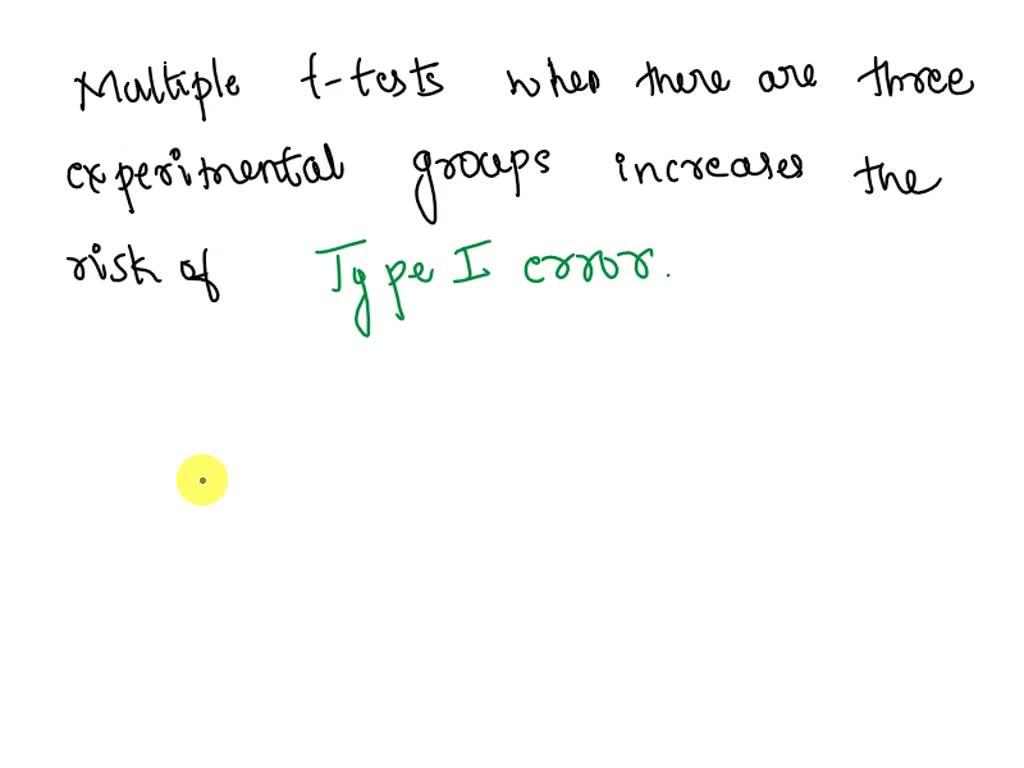 Multiple t-tests when there are three
experimental groups increases the
risk of Type I error.